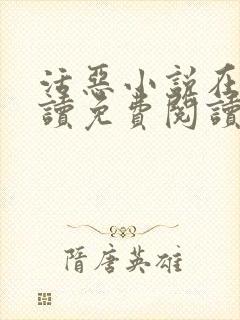 活惡小說在
讀免費閱讀
隋唐英雄